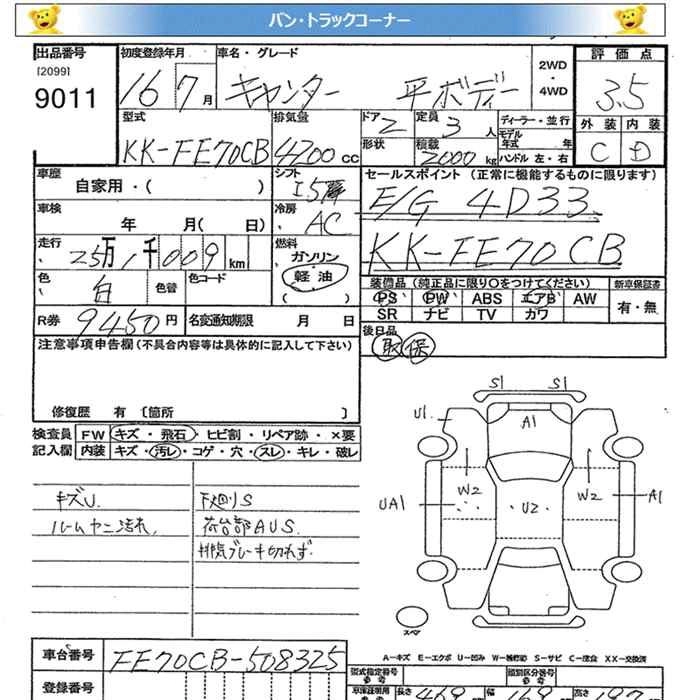 バン・トラックコーナー
出品番号 初度登録年月 車名・グレード 2WD ・ 4WD 評価点
[2099]
9011 16 7月 キャンター 平ボディー 3.5
型式 排気量 ドア 定員 ディーラー・並行 外装 内装
KK-FE70CB 4200cc 2 3人 モデル年式 年 C D
形状 積載 2000kg ハンドル 左・右
車歴 自家用・( ) シフト I5 セールスポイント (正常に機能するものに限ります)
車検 年 月( 日) 冷房 AC E/G 4D33.
走行 25万1千009km 燃料 ガソリン KK-FE70CB
軽油
( )
色 白 色替 色コード 装備品 (純正品に限り○をつけてください) 新車保証書
PS PW ABS エアB AW 有・無
SR ナビ TV カワ
R券 9450円 名変通知期限 月 日 後日品
注意事項申告欄 (不具合内容等は具体的に記入して下さい) 取 保
修復歴 有 〔箇所 〕
検査員 FW キズ・飛石・ヒビ割・リペア跡・×要
記入欄 内装 キズ・汚レ・コゲ・穴・スレ・キレ・破レ
キズU. 下廻りS
ルームヤニ汚れ. 荷台部AUS.
排気ブレーキ切れず.
S1 S1
U1 A1
W2 W2
UA1 U2 A1
スペア
A-キズ E-エクボ U-凹み W-補修跡 S-サビ C-腐食 XX-交換済
車台番号 FE70CB-508325
型式指定番号 類別区分番号
登録番号 長さ 469 幅 169 高さ 197